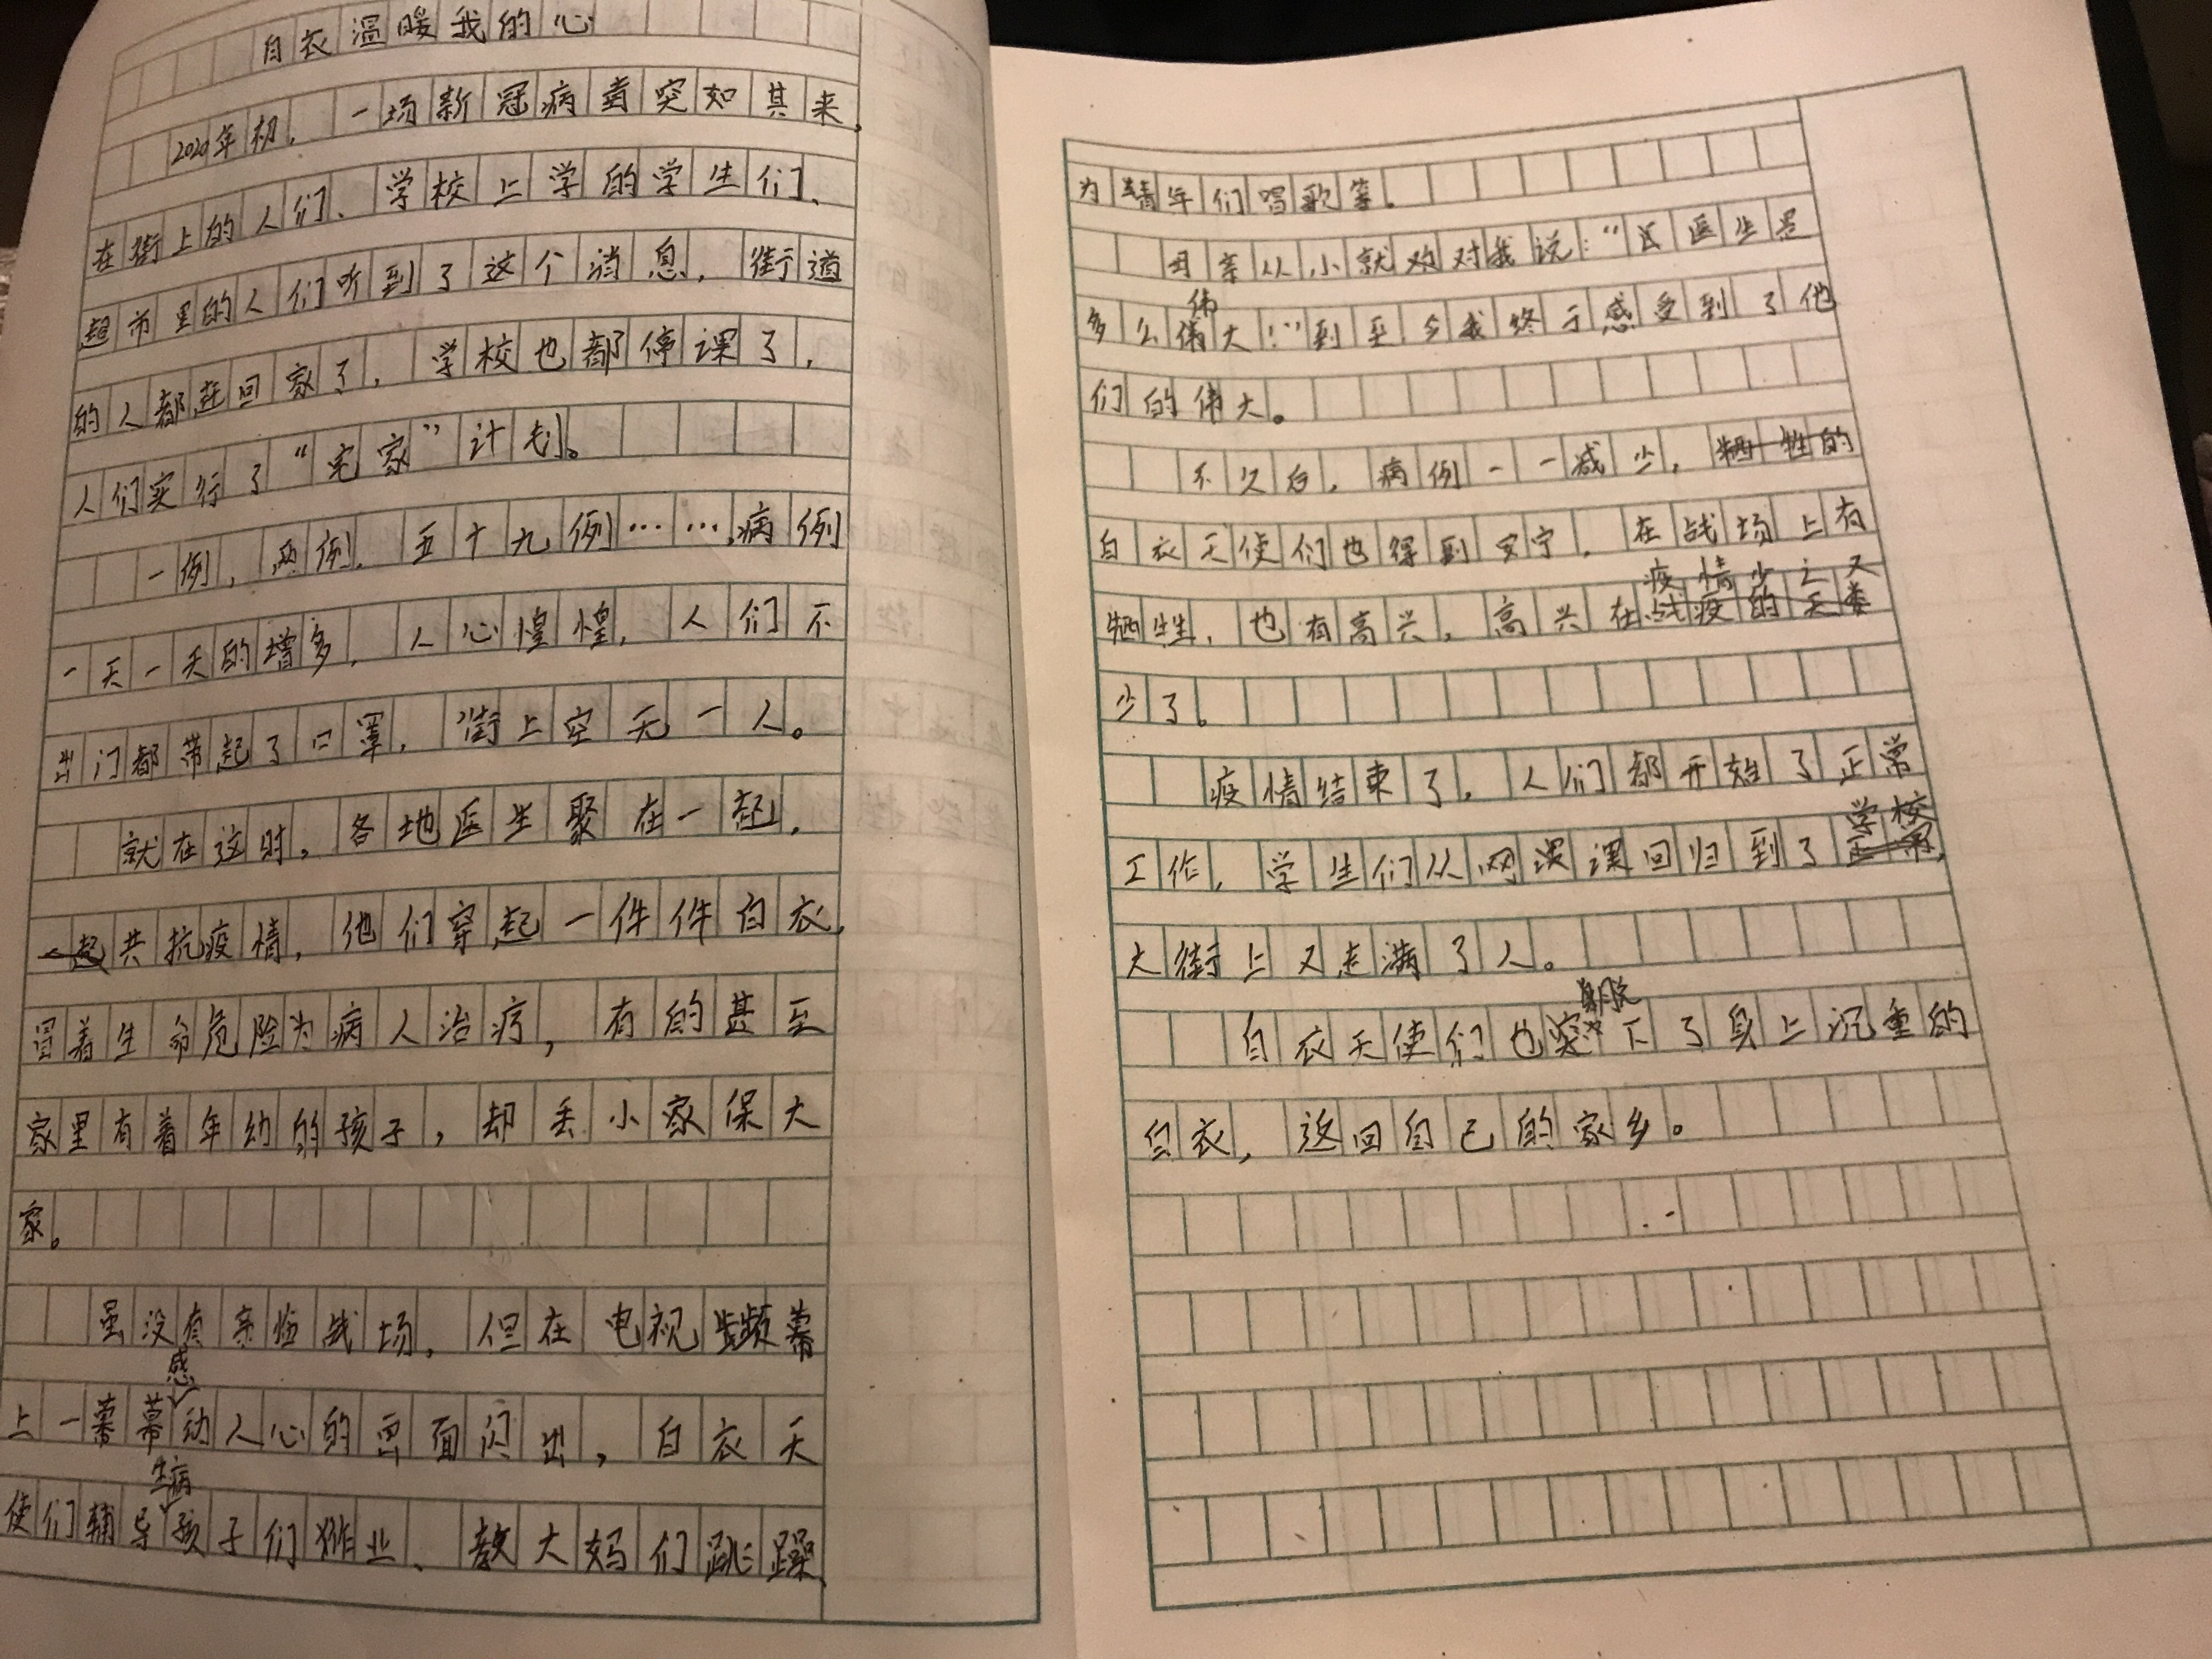 白衣温暖我的心
2020年初，一场新冠病毒突如其来，
在街上的人们、学校上学的学生们、
超市里的人们听到了这个消息，街道
的人都赶回家了，学校也都停课了，
人们实行了“宅家”计划。
一例，两例，五十九例……病例
一天一天的增多，人心惶惶，人们不
出门都带起了口罩，街上空无一人。
就在这时，各地医生聚在一起，
共抗疫情，他们穿起一件件白衣，
冒着生命危险为病人治疗，有的甚至
家里有着年幼的孩子，却丢小家保大
家。
虽没有亲临战场，但在电视频幕
上一幕幕感动人心的画面闪出，白衣天
使们辅导生病孩子们作业、教大妈们跳躁、
为精年们唱歌等。
母亲从小就对我说：“医生是
多么伟大！”到至今我终于感受到了他
们的伟大。
不久后，病例一一减少，牺牲的
白衣天使们也得到安宁，在战场上有
牺牲，也有高兴，高兴在疫情少之又
少了。
疫情结束了，人们都开始了正常
工作，学生们从网课回归到了学校，
大街上又走满了人。
白衣天使们也脱下了身上沉重的
白衣，返回自己的家乡。